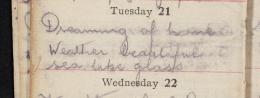 Tuesday 21
Dreaming of home
Weather beautiful
sea like glass
Wednesday 22